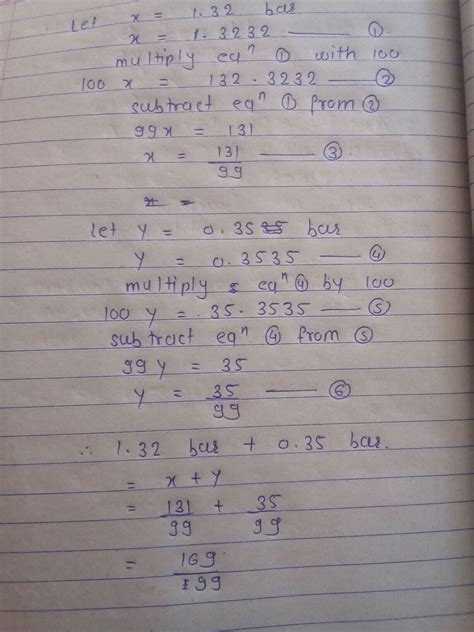 let x = 1.32 bar
x = 1.3232 —— ①.
multiply eqⁿ ① with 100
100 x = 132.3232 —— ②
subtract eqⁿ ① from ②
99x = 131
x = 131/99 —— ③.
x =
let y = 0.35 bar
y = 0.3535 —— ④
multiply eqⁿ ④ by 100
100 y = 35.3535 —— ⑤
subtract eqⁿ ④ from ⑤
99 y = 35
y = 35/99 —— ⑥
∴ 1.32 bar + 0.35 bar.
= x + y
= 131/99 + 35/99
= 169/199